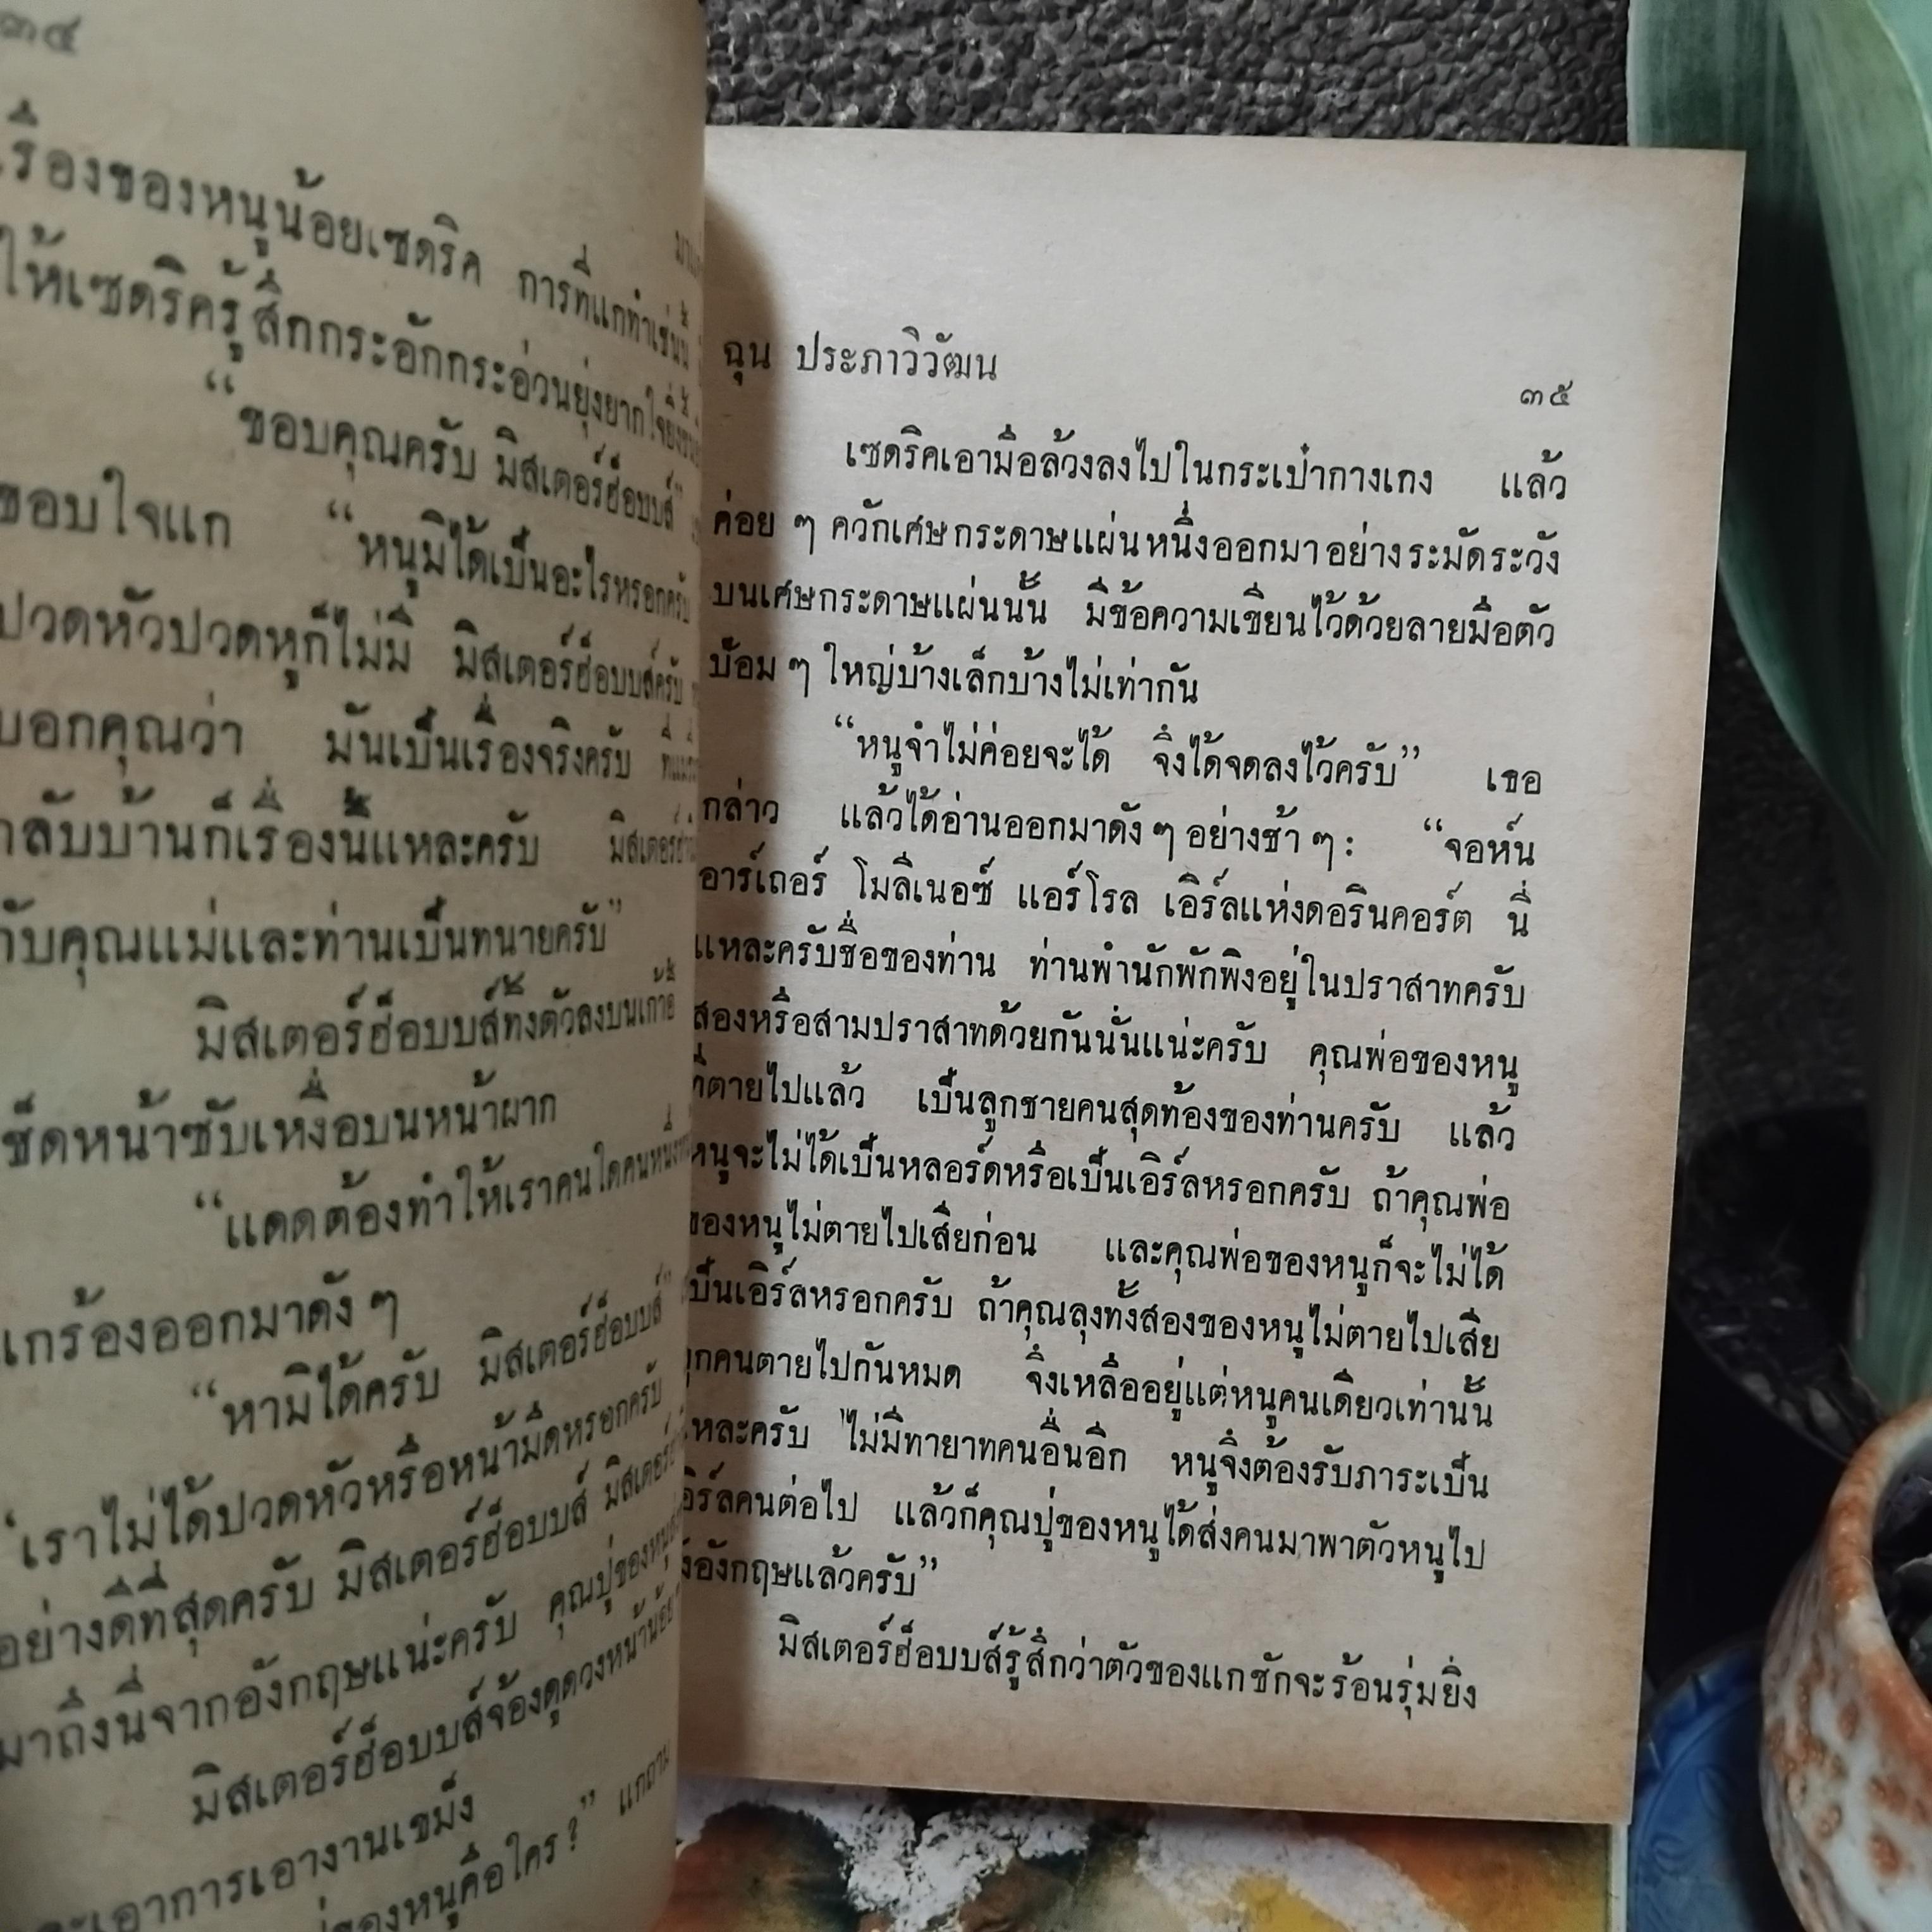 ๓๔
เรื่องของหนูน้อยเซดริค การที่แกทำเช่นนั้น
ให้เซดริครู้สึกกระอักกระอ่วนยุ่งยากใจยิ่งขึ้น
“ขอบคุณครับ มิสเตอร์ฮ็อบบส์”
ขอบใจแก “หนูมิได้เป็นอะไรหรอกครับ
ปวดหัวปวดหูก็ไม่มี มิสเตอร์ฮ็อบบส์ครับ
บอกคุณว่า มันเป็นเรื่องจริงครับ
กลับบ้านก็เรื่องนี้แหละครับ
กับคุณแม่และท่านเป็นทนายครับ”
มิสเตอร์ฮ็อบบส์ทิ้งตัวลงบนเก้าอี้
เช็ดหน้าซับเหงื่อบนหน้าผาก
“แดดต้องทำให้เราคนใดคนหนึ่ง
แกร้องออกมาดัง ๆ
“หามิได้ครับ มิสเตอร์ฮ็อบบส์”
“เราไม่ได้ปวดหัวหรือหน้ามืดหรอกครับ
อย่างดีที่สุดครับ มิสเตอร์ฮ็อบบส์
มาถึงนี่จากอังกฤษแน่ะครับ คุณปู่ของหนู
มิสเตอร์ฮ็อบบส์จ้องดูดวงหน้าน้อย
และเอาการเอางานเขม็ง
ของหนูคือใคร?” แกถาม
ฉุน ประภาวิวัฒน
๓๕
เซดริคเอามือล้วงลงไปในกระเป๋ากางเกง แล้ว
ค่อย ๆ ควักเศษกระดาษแผ่นหนึ่งออกมาอย่างระมัดระวัง
บนเศษกระดาษแผ่นนั้น มีข้อความเขียนไว้ด้วยลายมือตัว
ป้อม ๆ ใหญ่บ้างเล็กบ้างไม่เท่ากัน
“หนูจำไม่ค่อยจะได้ จึงได้จดลงไว้ครับ” เธอ
กล่าว แล้วได้อ่านออกมาดัง ๆ อย่างช้า ๆ : “จอห์น
อาร์เถอร์ โมลิเนอซ์ แอร์โรล เอิร์ลแห่งดอรินคอร์ต นี่
แหละครับชื่อของท่าน ท่านพำนักพักพิงอยู่ในปราสาทครับ
สองหรือสามปราสาทด้วยกันนั่นแน่ะครับ คุณพ่อของหนู
ที่ตายไปแล้ว เป็นลูกชายคนสุดท้องของท่านครับ แล้ว
หนูจะไม่ได้เป็นหลอร์ดหรือเป็นเอิร์ลหรอกครับ ถ้าคุณพ่อ
ของหนูไม่ตายไปเสียก่อน และคุณพ่อของหนูก็จะไม่ได้
เป็นเอิร์ลหรอกครับ ถ้าคุณลุงทั้งสองของหนูไม่ตายไปเสีย
ทุกคนตายไปกันหมด จึงเหลืออยู่แต่หนูคนเดียวเท่านั้น
แหละครับ ไม่มีทายาทคนอื่นอีก หนูจึงต้องรับภาระเป็น
เอิร์ลคนต่อไป แล้วก็คุณปู่ของหนูได้ส่งคนมาพาตัวหนูไป
ยังอังกฤษแล้วครับ”
มิสเตอร์ฮ็อบบส์รู้สึกว่าตัวของแกชักจะร้อนรุ่มยิ่ง